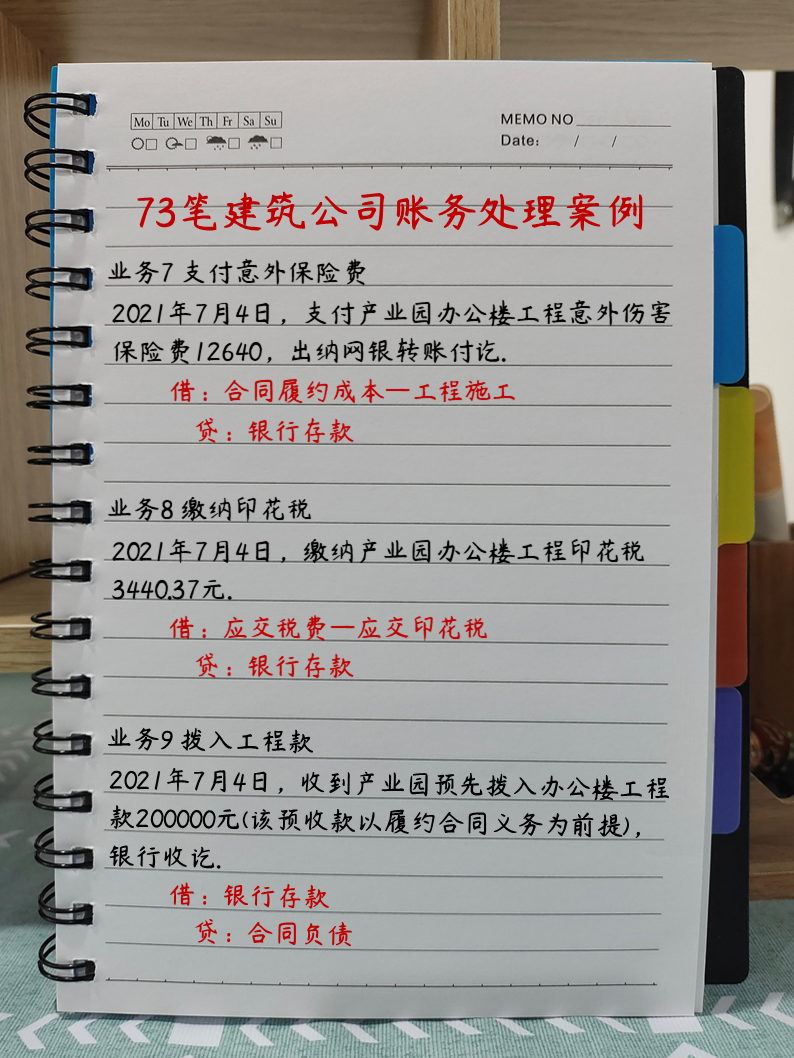 Mo Tu We Th Fr Sa Su
MEMO NO
Date: / /
73笔建筑公司账务处理案例
业务7 支付意外保险费
2021年7月4日，支付产业园办公楼工程意外伤害
保险费12640，出纳网银转账付讫.
借：合同履约成本—工程施工
贷：银行存款
业务8 缴纳印花税
2021年7月4日，缴纳产业园办公楼工程印花税
3440.37元.
借：应交税费—应交印花税
贷：银行存款
业务9 拨入工程款
2021年7月4日，收到产业园预先拨入办公楼工程
款200000元(该预收款以履约合同义务为前提)，
银行收讫.
借：银行存款
贷：合同负债